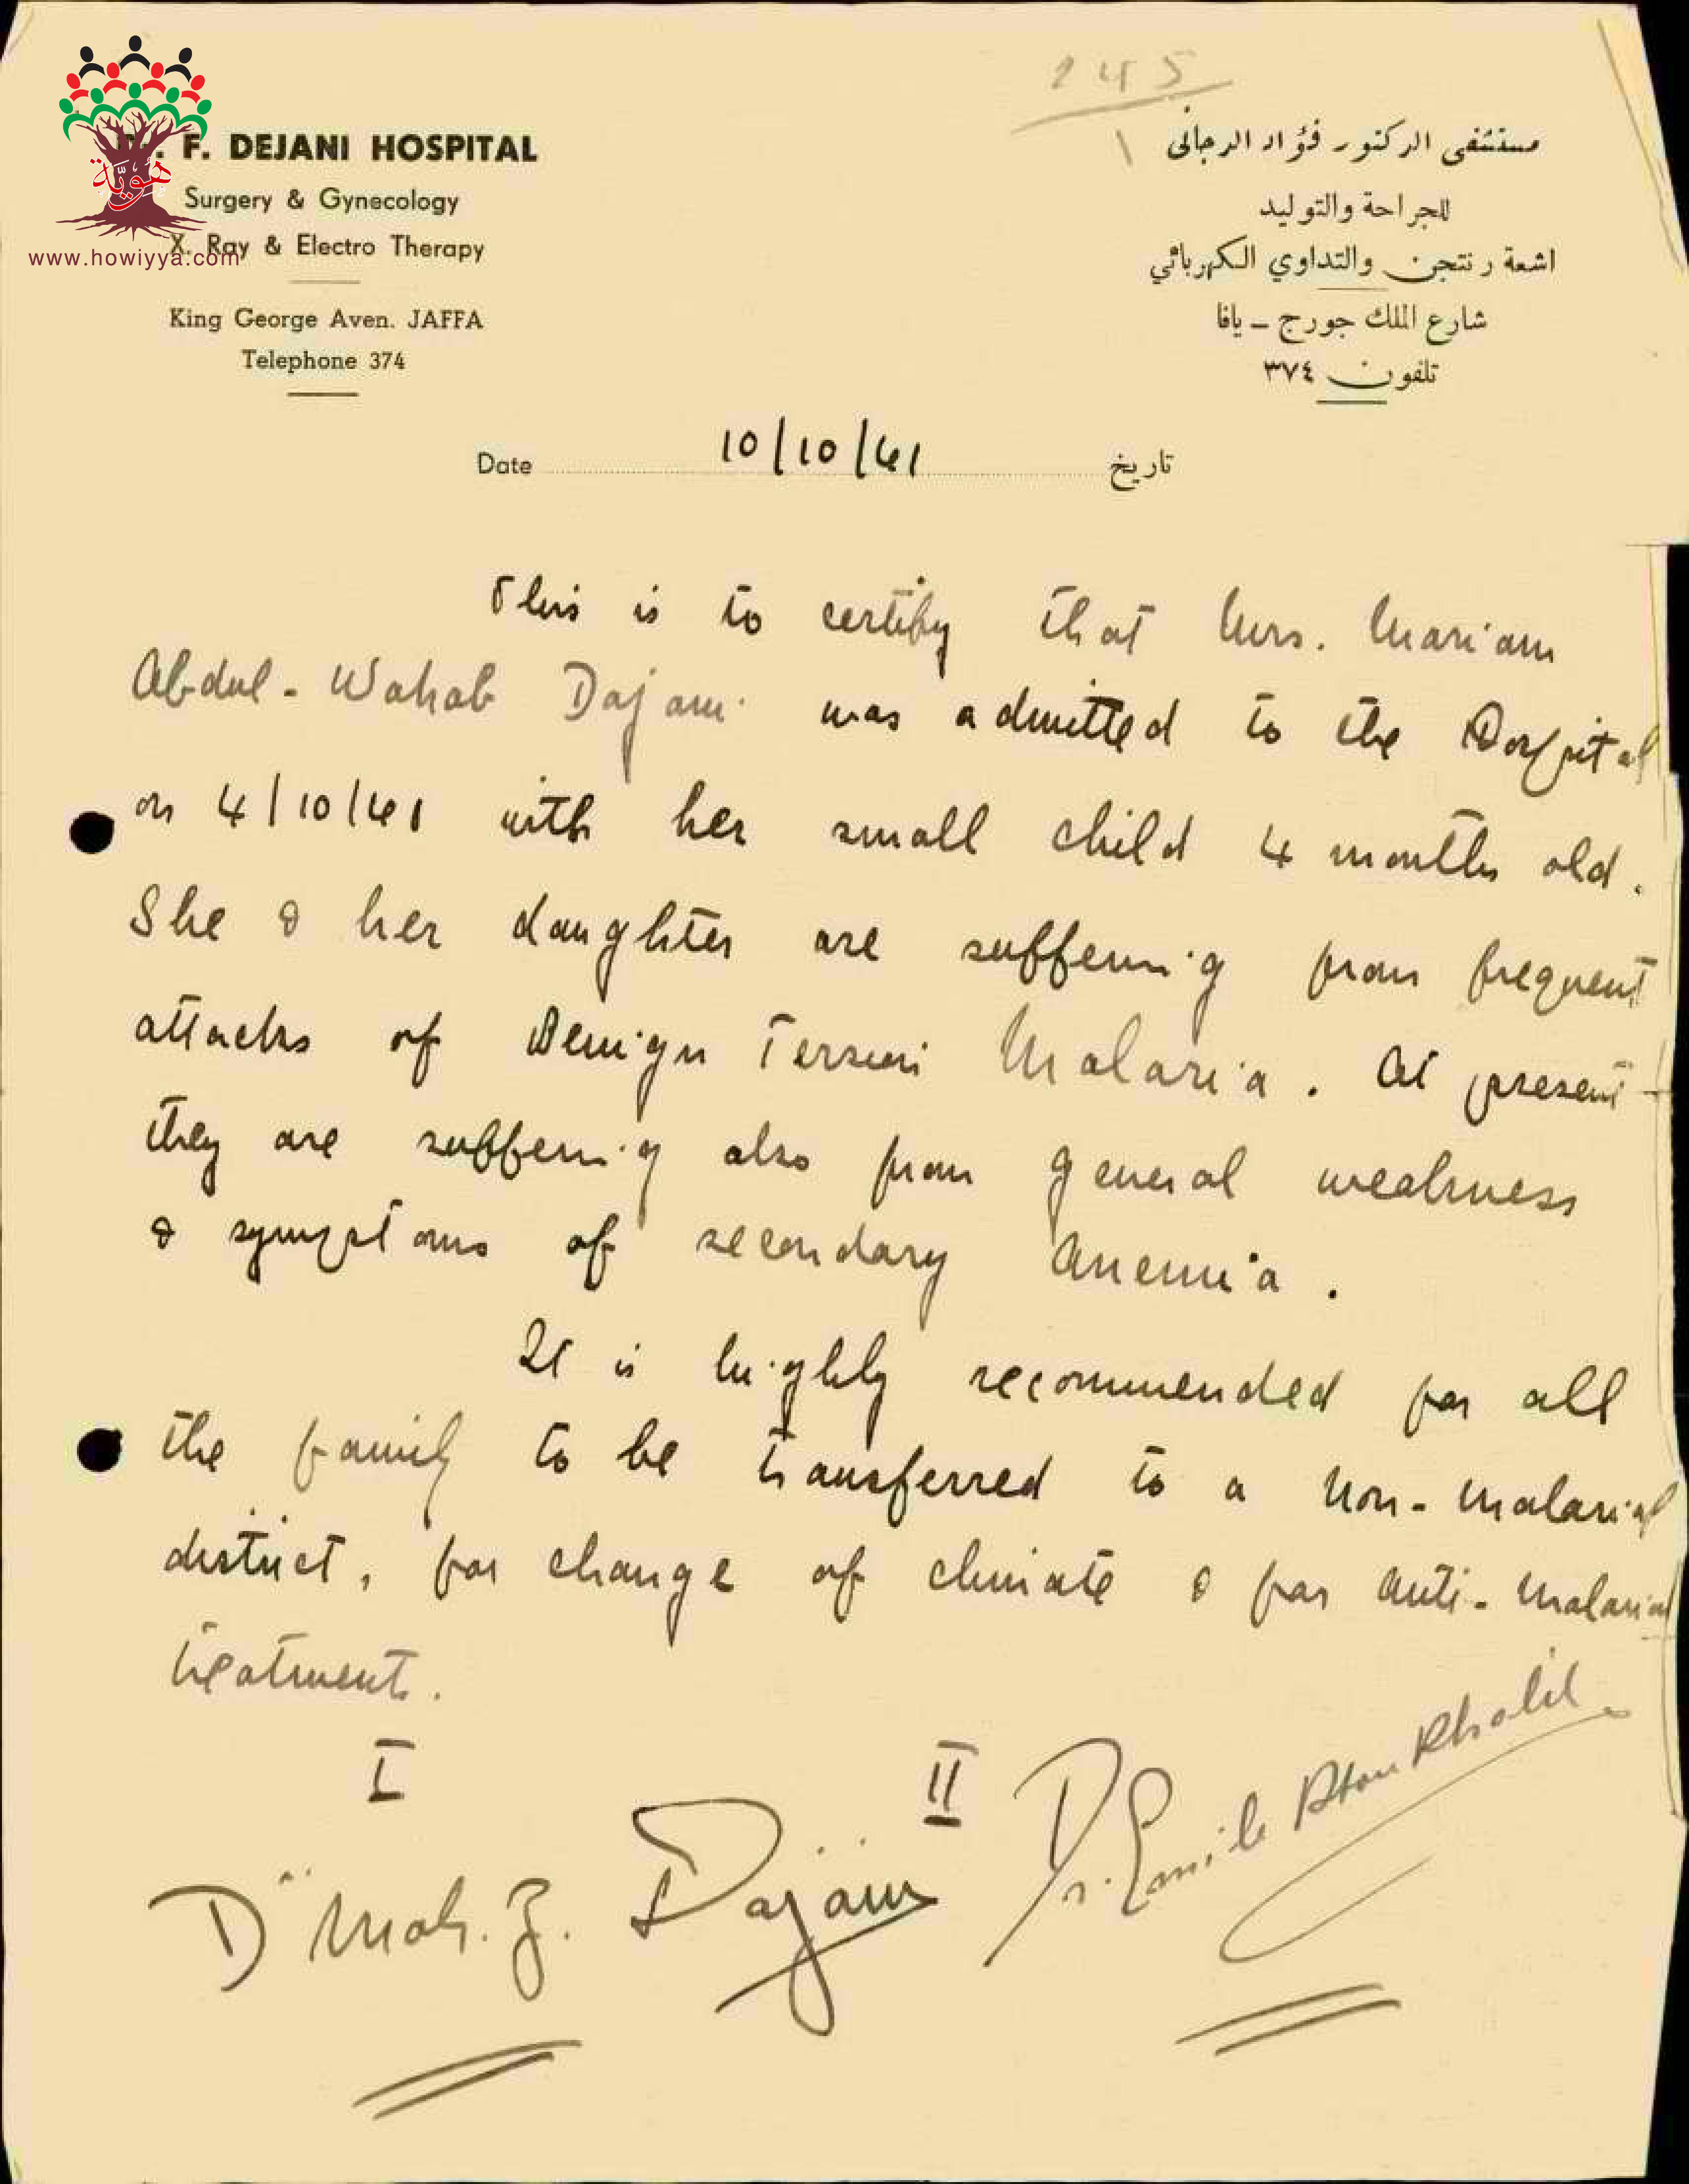 245
F. DEJANI HOSPITAL
Surgery & Gynecology
X. Ray & Electro Therapy
King George Aven. JAFFA
Telephone 374
هوية
www.howiyya.com
مستشفى الدكتور فؤاد الدجاني
للجراحة والتوليد
اشعة رنتجن والتداوي الكهربائي
شارع الملك جورج - يافا
تلفون ٣٧٤
Date 10/10/41 تاريخ
This is to certify that Mrs. Mariam
Abdul-Wahab Dajani was admitted to the Hospital
on 4/10/41 with her small child 4 months old.
She & her daughter are suffering from frequent
attacks of Benign Malaria. At present
they are suffering also from general weakness
& symptoms of secondary Anemia.
It is highly recommended for all
the family to be transferred to a non-malarial
district, for change of climate & for anti-malarial
treatment.
I II
Dr Moh. Dajani
Dr. Emile Abou Khalil